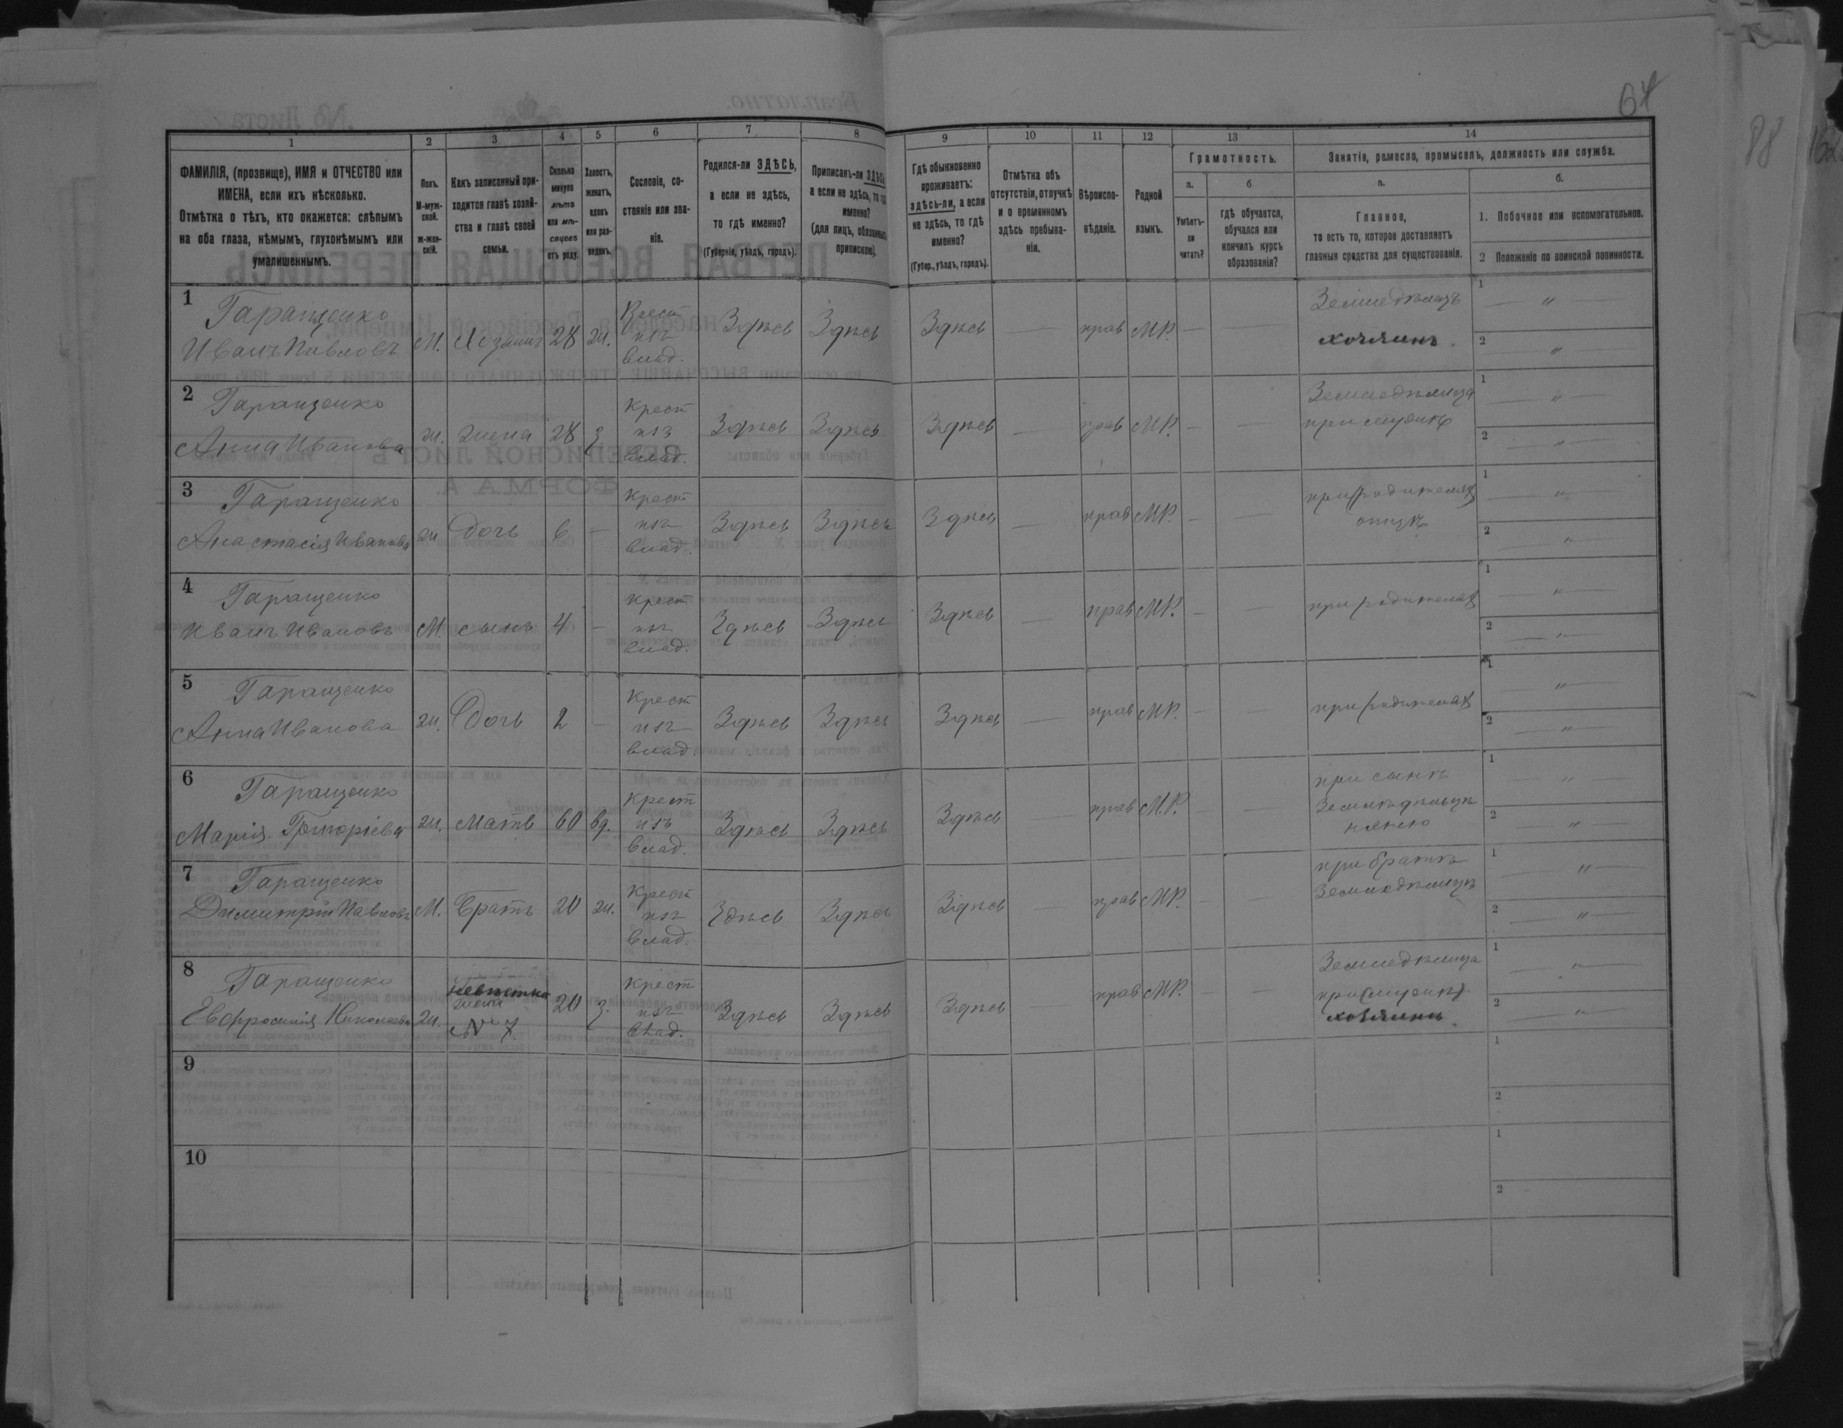 64
88
1 2 3 4 5 6 7 8 9 10 11 12 13 14
ФАМИЛІЯ, (прозвище), ИМЯ и ОТЧЕСТВО или
ИМЕНА, если ихъ нѣсколько.
Отмѣтка о тѣхъ, кто окажется: слѣпымъ
на оба глаза, нѣмымъ, глухонѣмымъ или
умалишеннымъ.
Полъ.
М-муж-
ской.
ж-жен-
скій.
Какъ записанный при-
ходится главѣ хозяй-
ства и главѣ своей
семьи.
Сколько
минуло
лѣтъ
или мѣ-
сяцевъ
отъ роду.
Холостъ,
женатъ,
вдовъ
или раз-
веденъ.
Сословіе, со-
стояніе или зва-
ніе.
Родился-ли ЗДѢСЬ,
а если не здѣсь,
то гдѣ именно?
(Губернія, уѣздъ, городъ).
Приписанъ-ли ЗДѢСЬ,
а если не здѣсь, то гдѣ
именно?
(для лицъ, обязанныхъ
припискою).
Гдѣ обыкновенно
проживаетъ:
здѣсь-ли, а если
не здѣсь, то гдѣ
именно?
(Губер., уѣздъ, городъ).
Отмѣтка объ
отсутствіи, отлучкѣ
и о временномъ
здѣсь пребыва-
ніи.
Вѣроиспо-
вѣданіе.
Родной
языкъ.
Грамотность.
а.
Умѣетъ-
ли
читать?
б
гдѣ обучается,
обучался или
кончилъ курсъ
образованія?
Занятіе, ремесло, промыселъ, должность или служба.
а.
Главное,
то есть то, которое доставляетъ
главныя средства для существованія.
б.
1. Побочное или вспомогательное.
2 Положеніе по воинской повинности.
1 Гаращенко
Иванъ Павловъ М. Хозяинъ 28 ж. Крест изъ влад. Здѣсь Здѣсь Здѣсь — прав М.Р. — — Земледѣлецъ хозяинъ. 1 — " — 2 — " —
2 Гаращенко
Анна Иванова ж. жена 28 з Крест изъ влад. Здѣсь Здѣсь Здѣсь — прав М.Р. — — Земледѣлица 1 — " — 2 — " —
3 Гаращенко
Анастасія Иванова ж дочь 6 — Крест изъ влад. Здѣсь Здѣсь Здѣсь — прав М.Р. — — при родителях отцѣ 1 — " — 2 — " —
4 Гаращенко
Иванъ Ивановъ М. сынъ 4 — Крест изъ влад. Здѣсь Здѣсь Здѣсь — прав М.Р. — — при родителях 1 — " — 2 — " —
5 Гаращенко
Анна Иванова ж. Дочь 2 — Крест изъ влад Здѣсь Здѣсь Здѣсь — прав М.Р. — — при родителях 1 — " — 2 — " —
6 Гаращенко
Марія Григоріева ж. мать 60 вд. Крест изъ влад. Здѣсь Здѣсь Здѣсь — прав М.Р. — — при сынѣ 1 — " — 2 — " —
7 Гаращенко
Димитрій Павловъ М. Братъ 20 ж. Крест изъ влад. Здѣсь Здѣсь Здѣсь — прав М.Р. — — при братѣ Земледѣлецъ 1 — " — 2 — " —
8 Гаращенко
Евфросинія Николаева ж. невѣстка жена № 7 20 з. Крест изъ влад. Здѣсь Здѣсь Здѣсь — прав М.Р. — — Земледѣлица 1 — " — 2 — " —
9 1 2
10 1 2